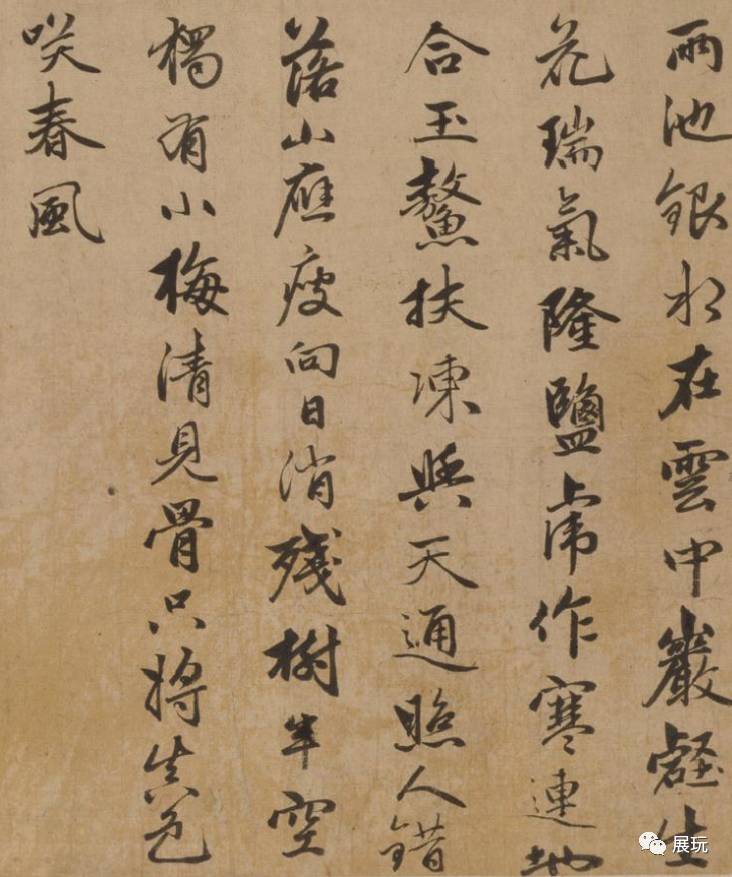 兩池銀水在雲中巖壑生
花瑞氣隆鹽虎作寒連地
合玉鰲扶凍與天通照人錯
落山應瘦向日消殘樹半空
獨有小梅清見骨只將真色
咲春風
展玩